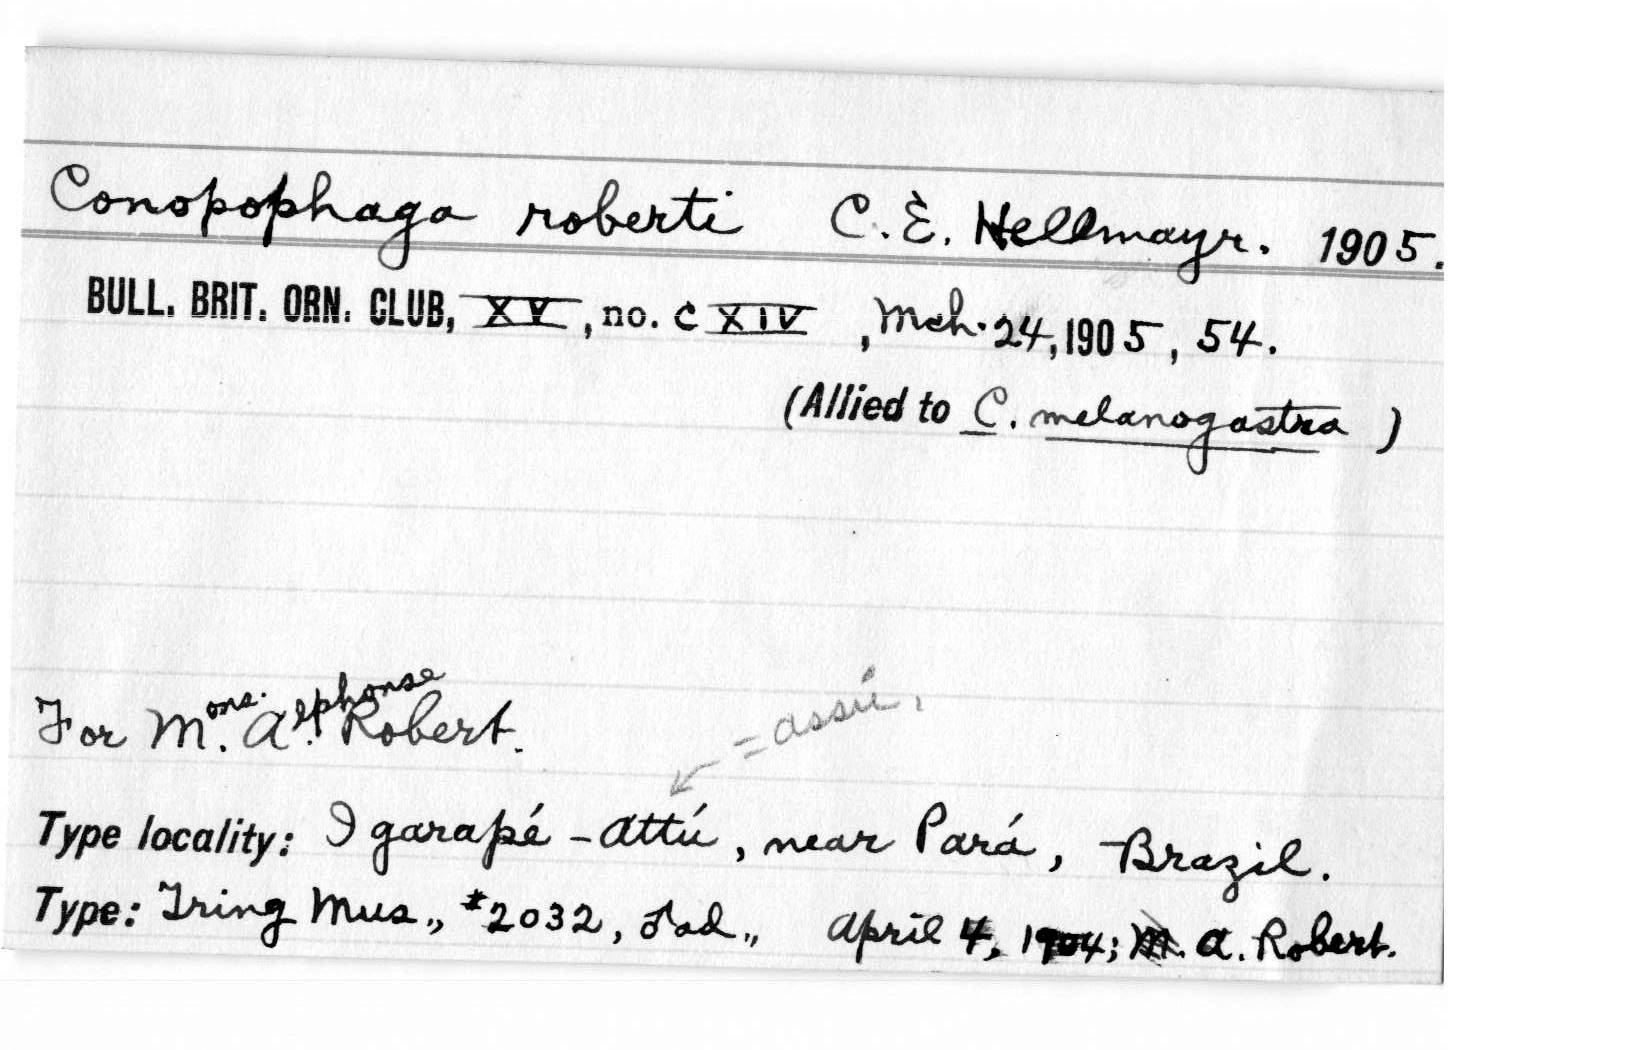 Conopophaga roberti C. E. Hellmayr. 1905.
BULL. BRIT. ORN. CLUB, XV, no. CXIV, Mch. 24, 1905, 54.
(Allied to C. melanogastra)
For Mons. Alphonse Robert.
= assú.
Type locality: Igarapé-Attú, near Pará, Brazil.
Type: Tring Mus., #2032, ♂ ad., April 4, 1904; M. A. Robert.